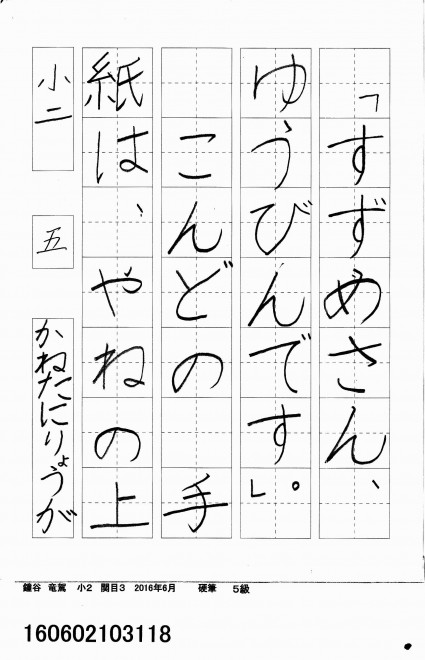 「すずめさん、
ゆうびんです」。
こんどの手
紙は、やねの上
小二
五
かねたにりょうが
鐘谷 竜駕 小2 関目3 2016年6月 硬筆 5級
160602103118